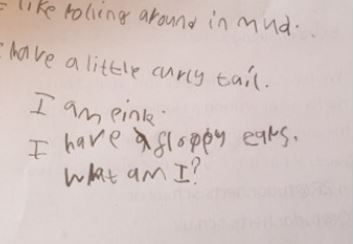 I like rolling around in mud.
I have a little curly tail.
I am pink.
I have floppy ears.
What am I?